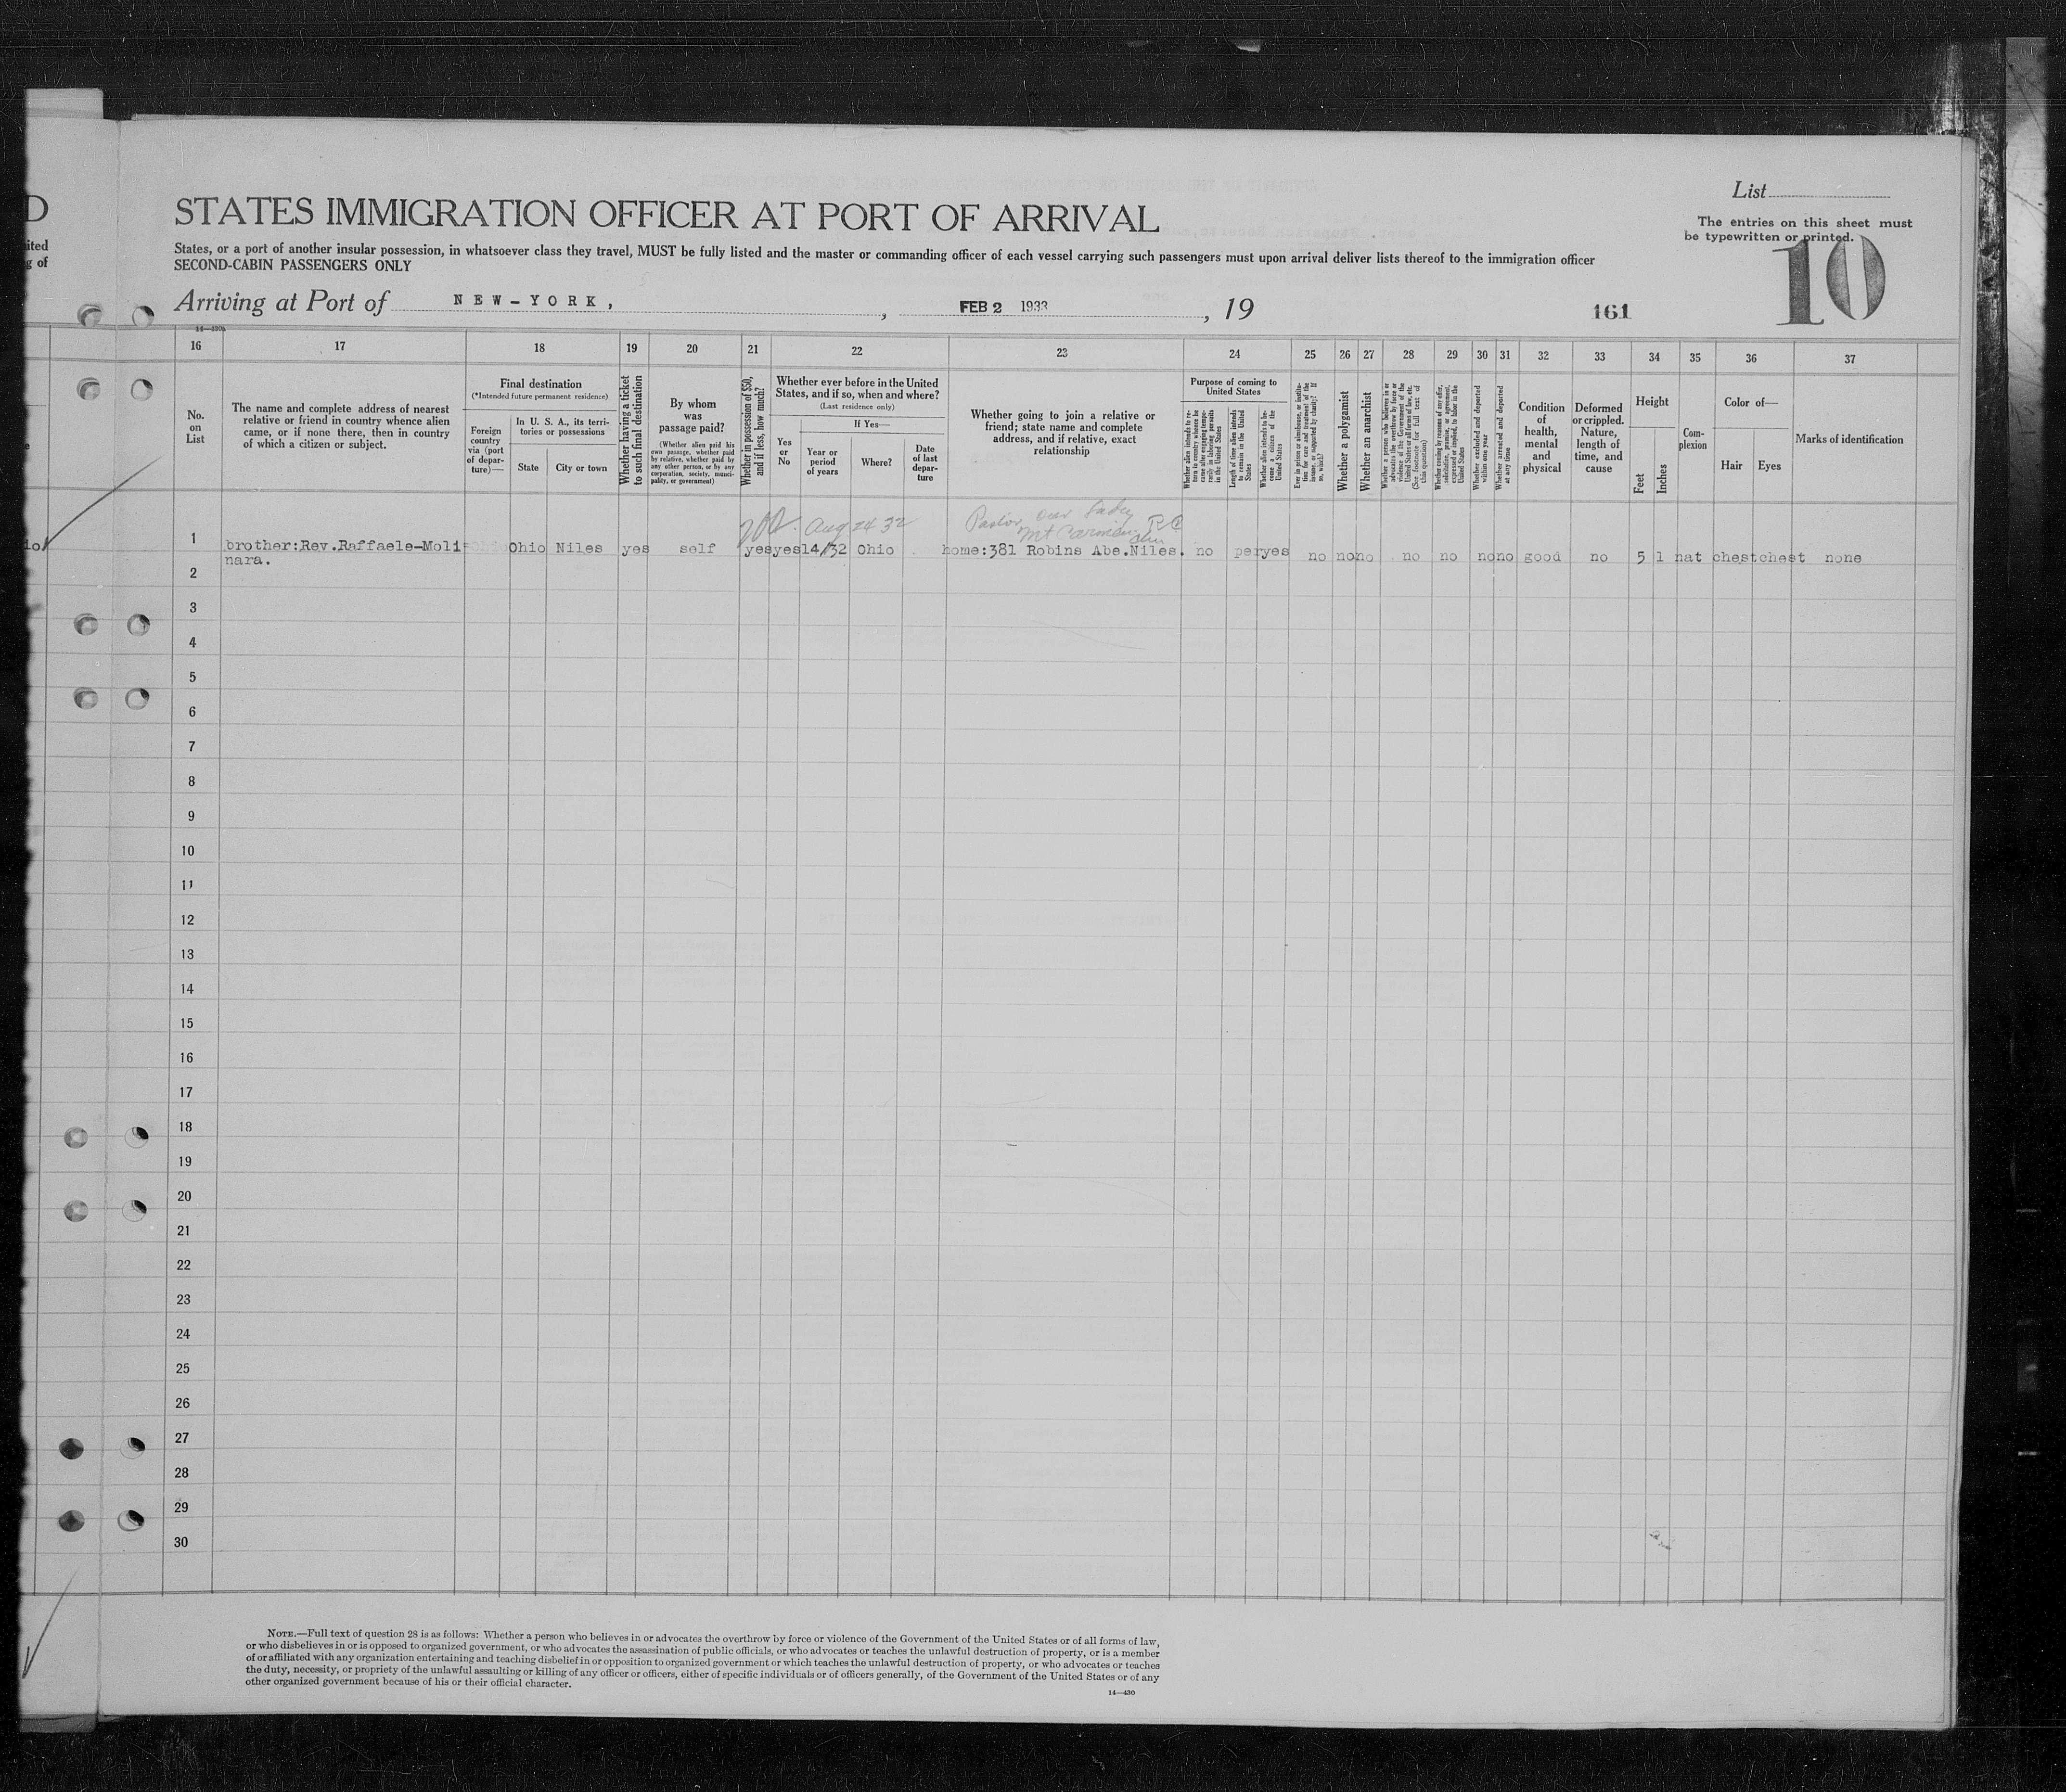 D
STATES IMMIGRATION OFFICER AT PORT OF ARRIVAL
List
The entries on this sheet must
be typewritten or printed.
ited
g of
States, or a port of another insular possession, in whatsoever class they travel, MUST be fully listed and the master or commanding officer of each vessel carrying such passengers must upon arrival deliver lists thereof to the immigration officer
SECOND-CABIN PASSENGERS ONLY
10
Arriving at Port of NEW-YORK, , FEB 2 1933 , 19
161
14—430
16 17 18 19 20 21 22 23 24 25 26 27 28 29 30 31 32 33 34 35 36 37
No.
on
List
The name and complete address of nearest
relative or friend in country whence alien
came, or if none there, then in country
of which a citizen or subject.
Final destination
(*Intended future permanent residence)
Foreign
country
via (port
of depar-
ture)—
In U. S. A., its terri-
tories or possessions
State
City or town
Whether having a ticket
to such final destination
By whom
was
passage paid?
(Whether alien paid his
own passage, whether paid
by relative, whether paid by
any other person, or by any
corporation, society, munici-
pality, or government)
Whether in possession of $50,
and if less, how much?
Whether ever before in the United
States, and if so, when and where?
(Last residence only)
Yes
or
No
If Yes—
Year or
period
of years
Where?
Date
of last
depar-
ture
Whether going to join a relative or
friend; state name and complete
address, and if relative, exact
relationship
Purpose of coming to
United States
Length of time alien intends
to remain in the United
States
Whether alien intends to be-
come a citizen of the
United States
Whether a polygamist
Whether an anarchist
Whether excluded and deported
within one year
Whether arrested and deported
at any time
Condition
of
health,
mental
and
physical
Deformed
or crippled.
Nature,
length of
time, and
cause
Height
Feet
Inches
Com-
plexion
Color of—
Hair
Eyes
Marks of identification
Aug 24 32
Pastor Our Lady
Mt Carmel R C
1 brother:Rev.Raffaele-Moli Ohio Niles yes self yes yes 14/32 Ohio home:381 Robins Abe.Niles. no per yes no no no no no no no good no 5 1 nat chest chest none
nara.
2
3
4
5
6
7
8
9
10
11
12
13
14
15
16
17
18
19
20
21
22
23
24
25
26
27
28
29
30
NOTE.—Full text of question 28 is as follows: Whether a person who believes in or advocates the overthrow by force or violence of the Government of the United States or of all forms of law,
or who disbelieves in or is opposed to organized government, or who advocates the assassination of public officials, or who advocates or teaches the unlawful destruction of property, or is a member
of or affiliated with any organization entertaining and teaching disbelief in or opposition to organized government or which teaches the unlawful destruction of property, or who advocates or teaches
the duty, necessity, or propriety of the unlawful assaulting or killing of any officer or officers, either of specific individuals or of officers generally, of the Government of the United States or of any
other organized government because of his or their official character.
14—430